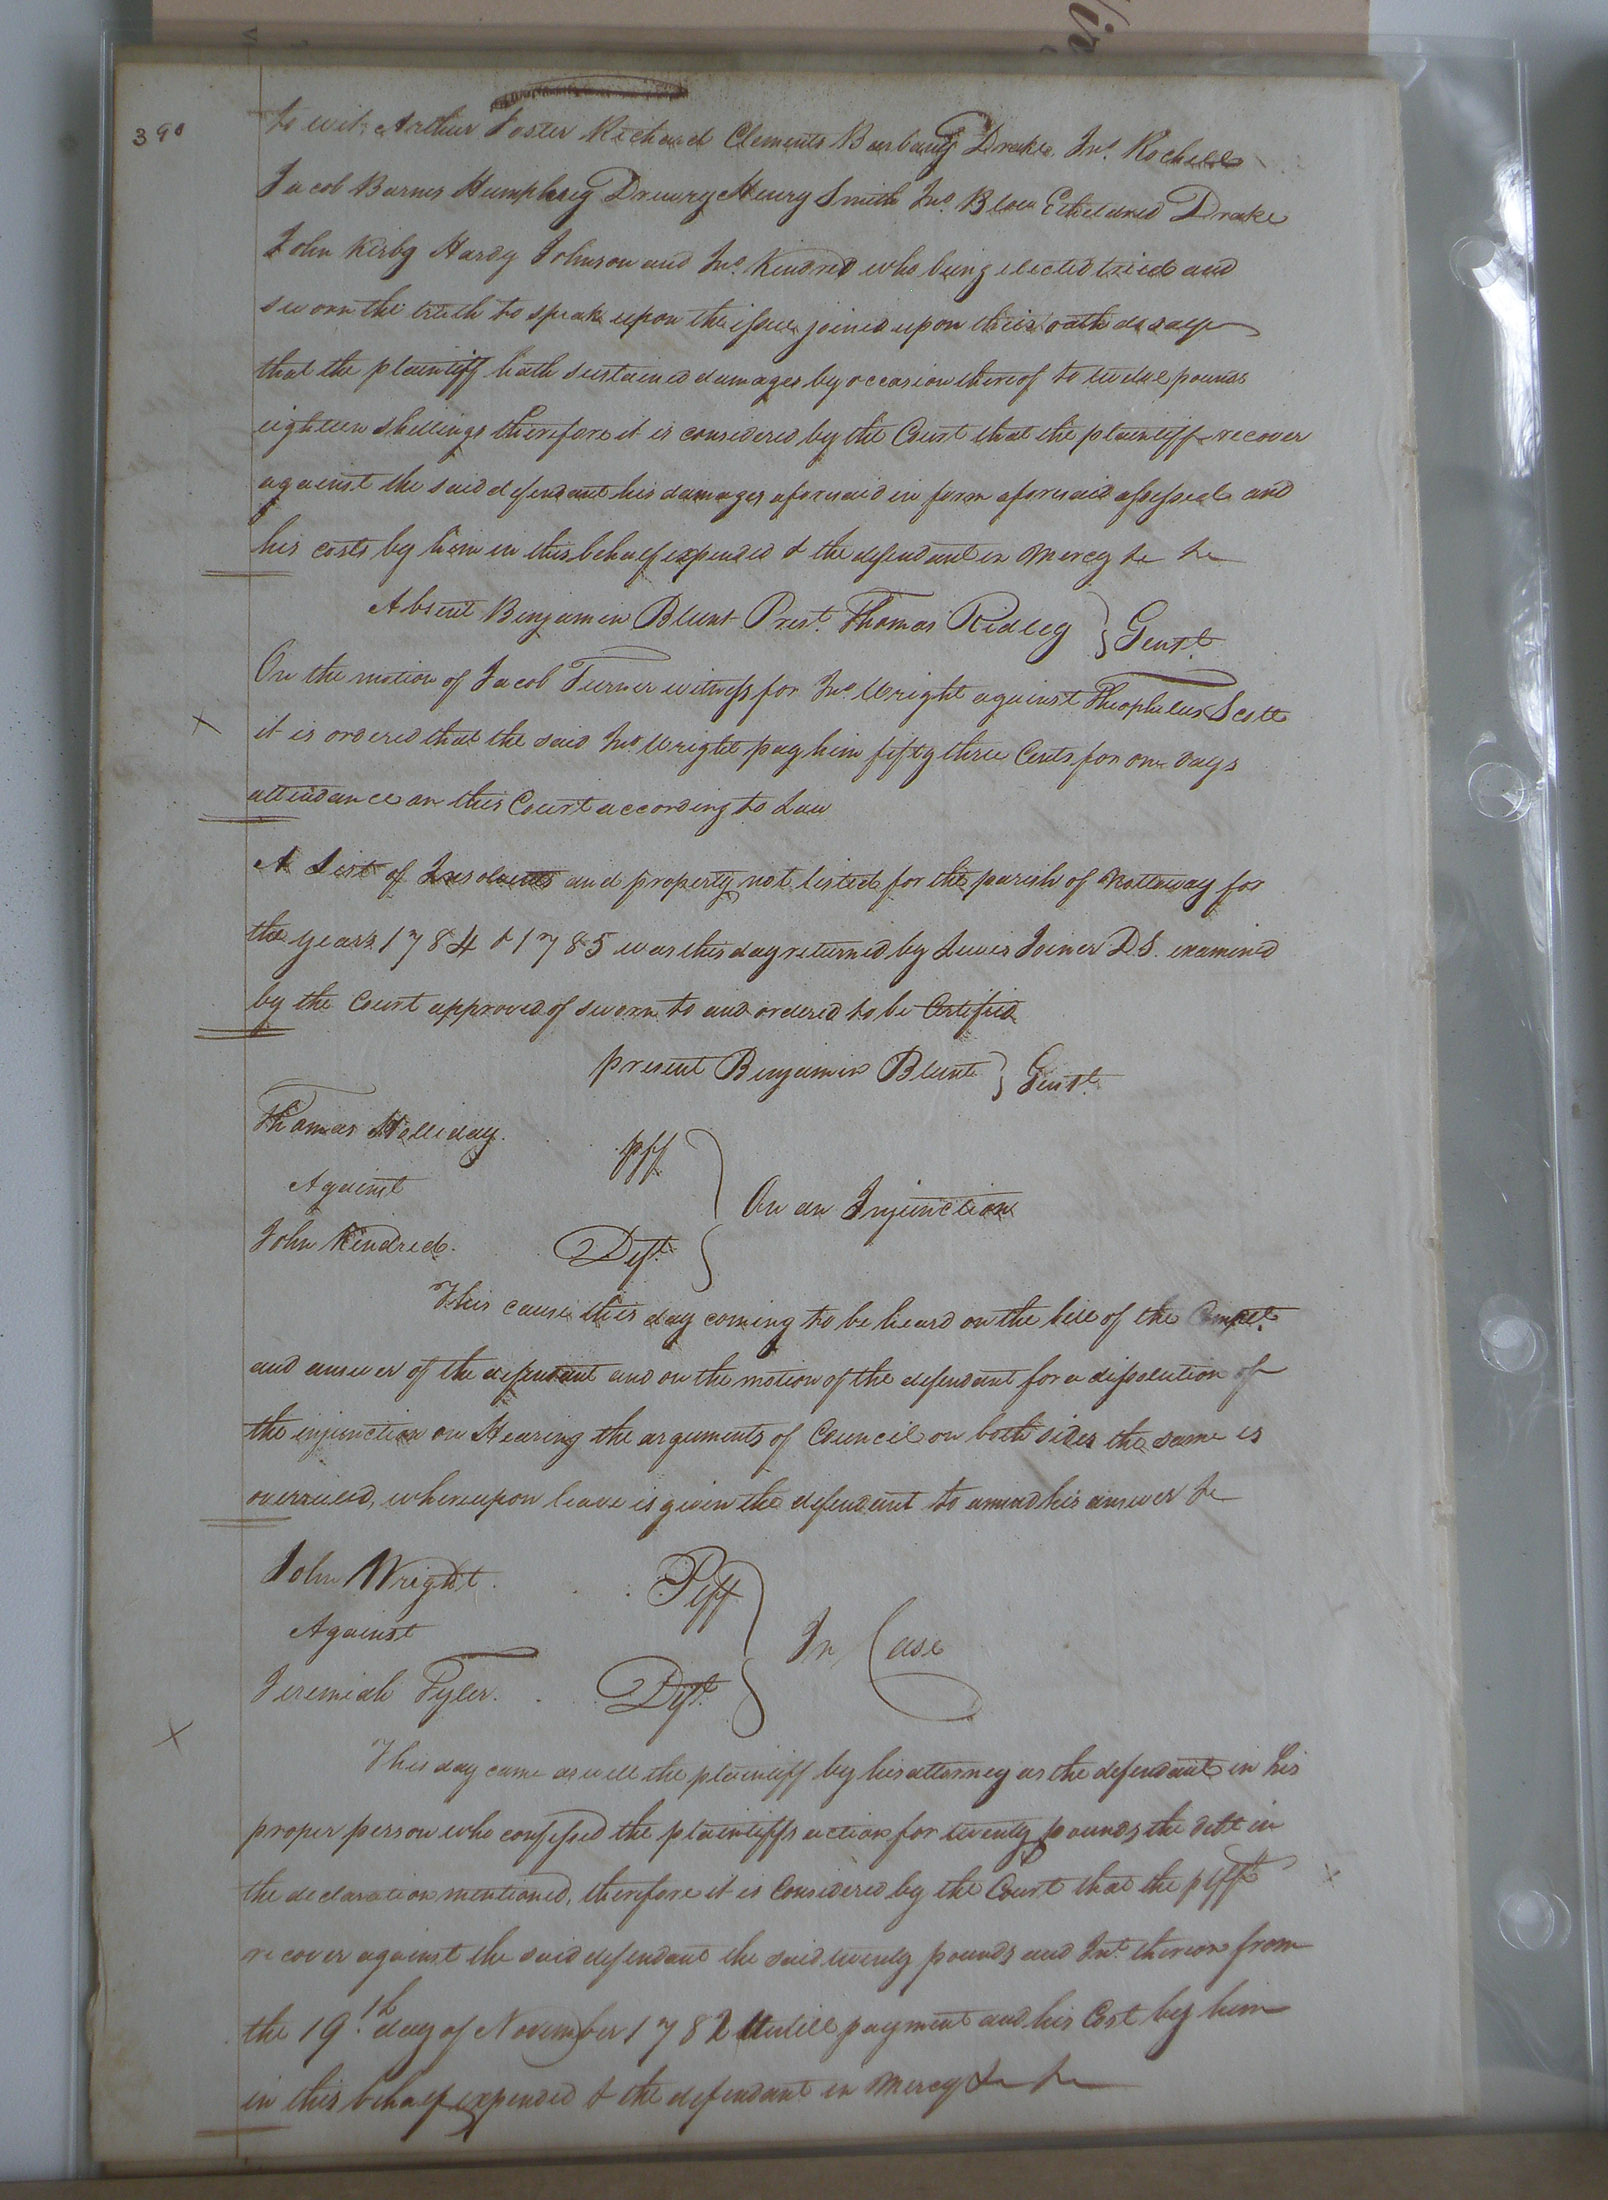 390
to wit, Arthur Foster Richard Clements Barbang Drake, Jnº. Rochell
Jacob Barnes Humphrey Drewry Henry Smith Jnº. Blow Etheldred Drake
John Kirby Hardy Johnson and Jnº. Kindred who being elected tried and
sworn the truth to speak upon the issue joined upon their oath do say
that the plaintiff hath sustained damages by occasion thereof to twelve pounds
eighteen shillings therefore it is considered by the Court that the plaintiff recover
against the said defendant his damages aforesaid in form aforesaid assessed and
his costs by him in this behalf expended & the defendant in Mercy &c &c
Absent Benjamin Blunt Prest. Thomas Ridley } Gent.
On the motion of Jacob Turner witness for Jnº. Wright against Theophelus Scott
it is ordered that the said Jnº. Wright pay him fifty three Cents for one days
attendance on this Court according to Law
A List of Insolvents and property not listed for the parish of Nottoway for
the years 1784 & 1785 was this day returned by Lewis Joiner D.S. examined
by the Court approved of sworn to and ordered to be Certified
present Benjamin Blunt } Gent.
Thomas Holliday. plff
Against } On an Injunction
John Kindred. Deft.
This cause this day coming to be heard on the bill of the Complt.
and answer of the defendant and on the motion of the defendant for a dissolution of
the injunction on Hearing the arguments of Council on both sides the same is
overruled, whereupon leave is given the defendant to amend his answer &c
John Wright. Plff
Against } In Case
Jeremiah Tyler. Deft.
This day came as well the plaintiff by his attorney as the defendant in his
proper person who confessed the plaintiffs action for twenty pounds the debt in
the declaration mentioned, therefore it is Considered by the Court that the plff
recover against the said defendant the said twenty pounds and Int. thereon from
the 19th. day of November 1782 Untill payment and his Cost by him
in this behalf expended & the defendant in Mercy &c &c